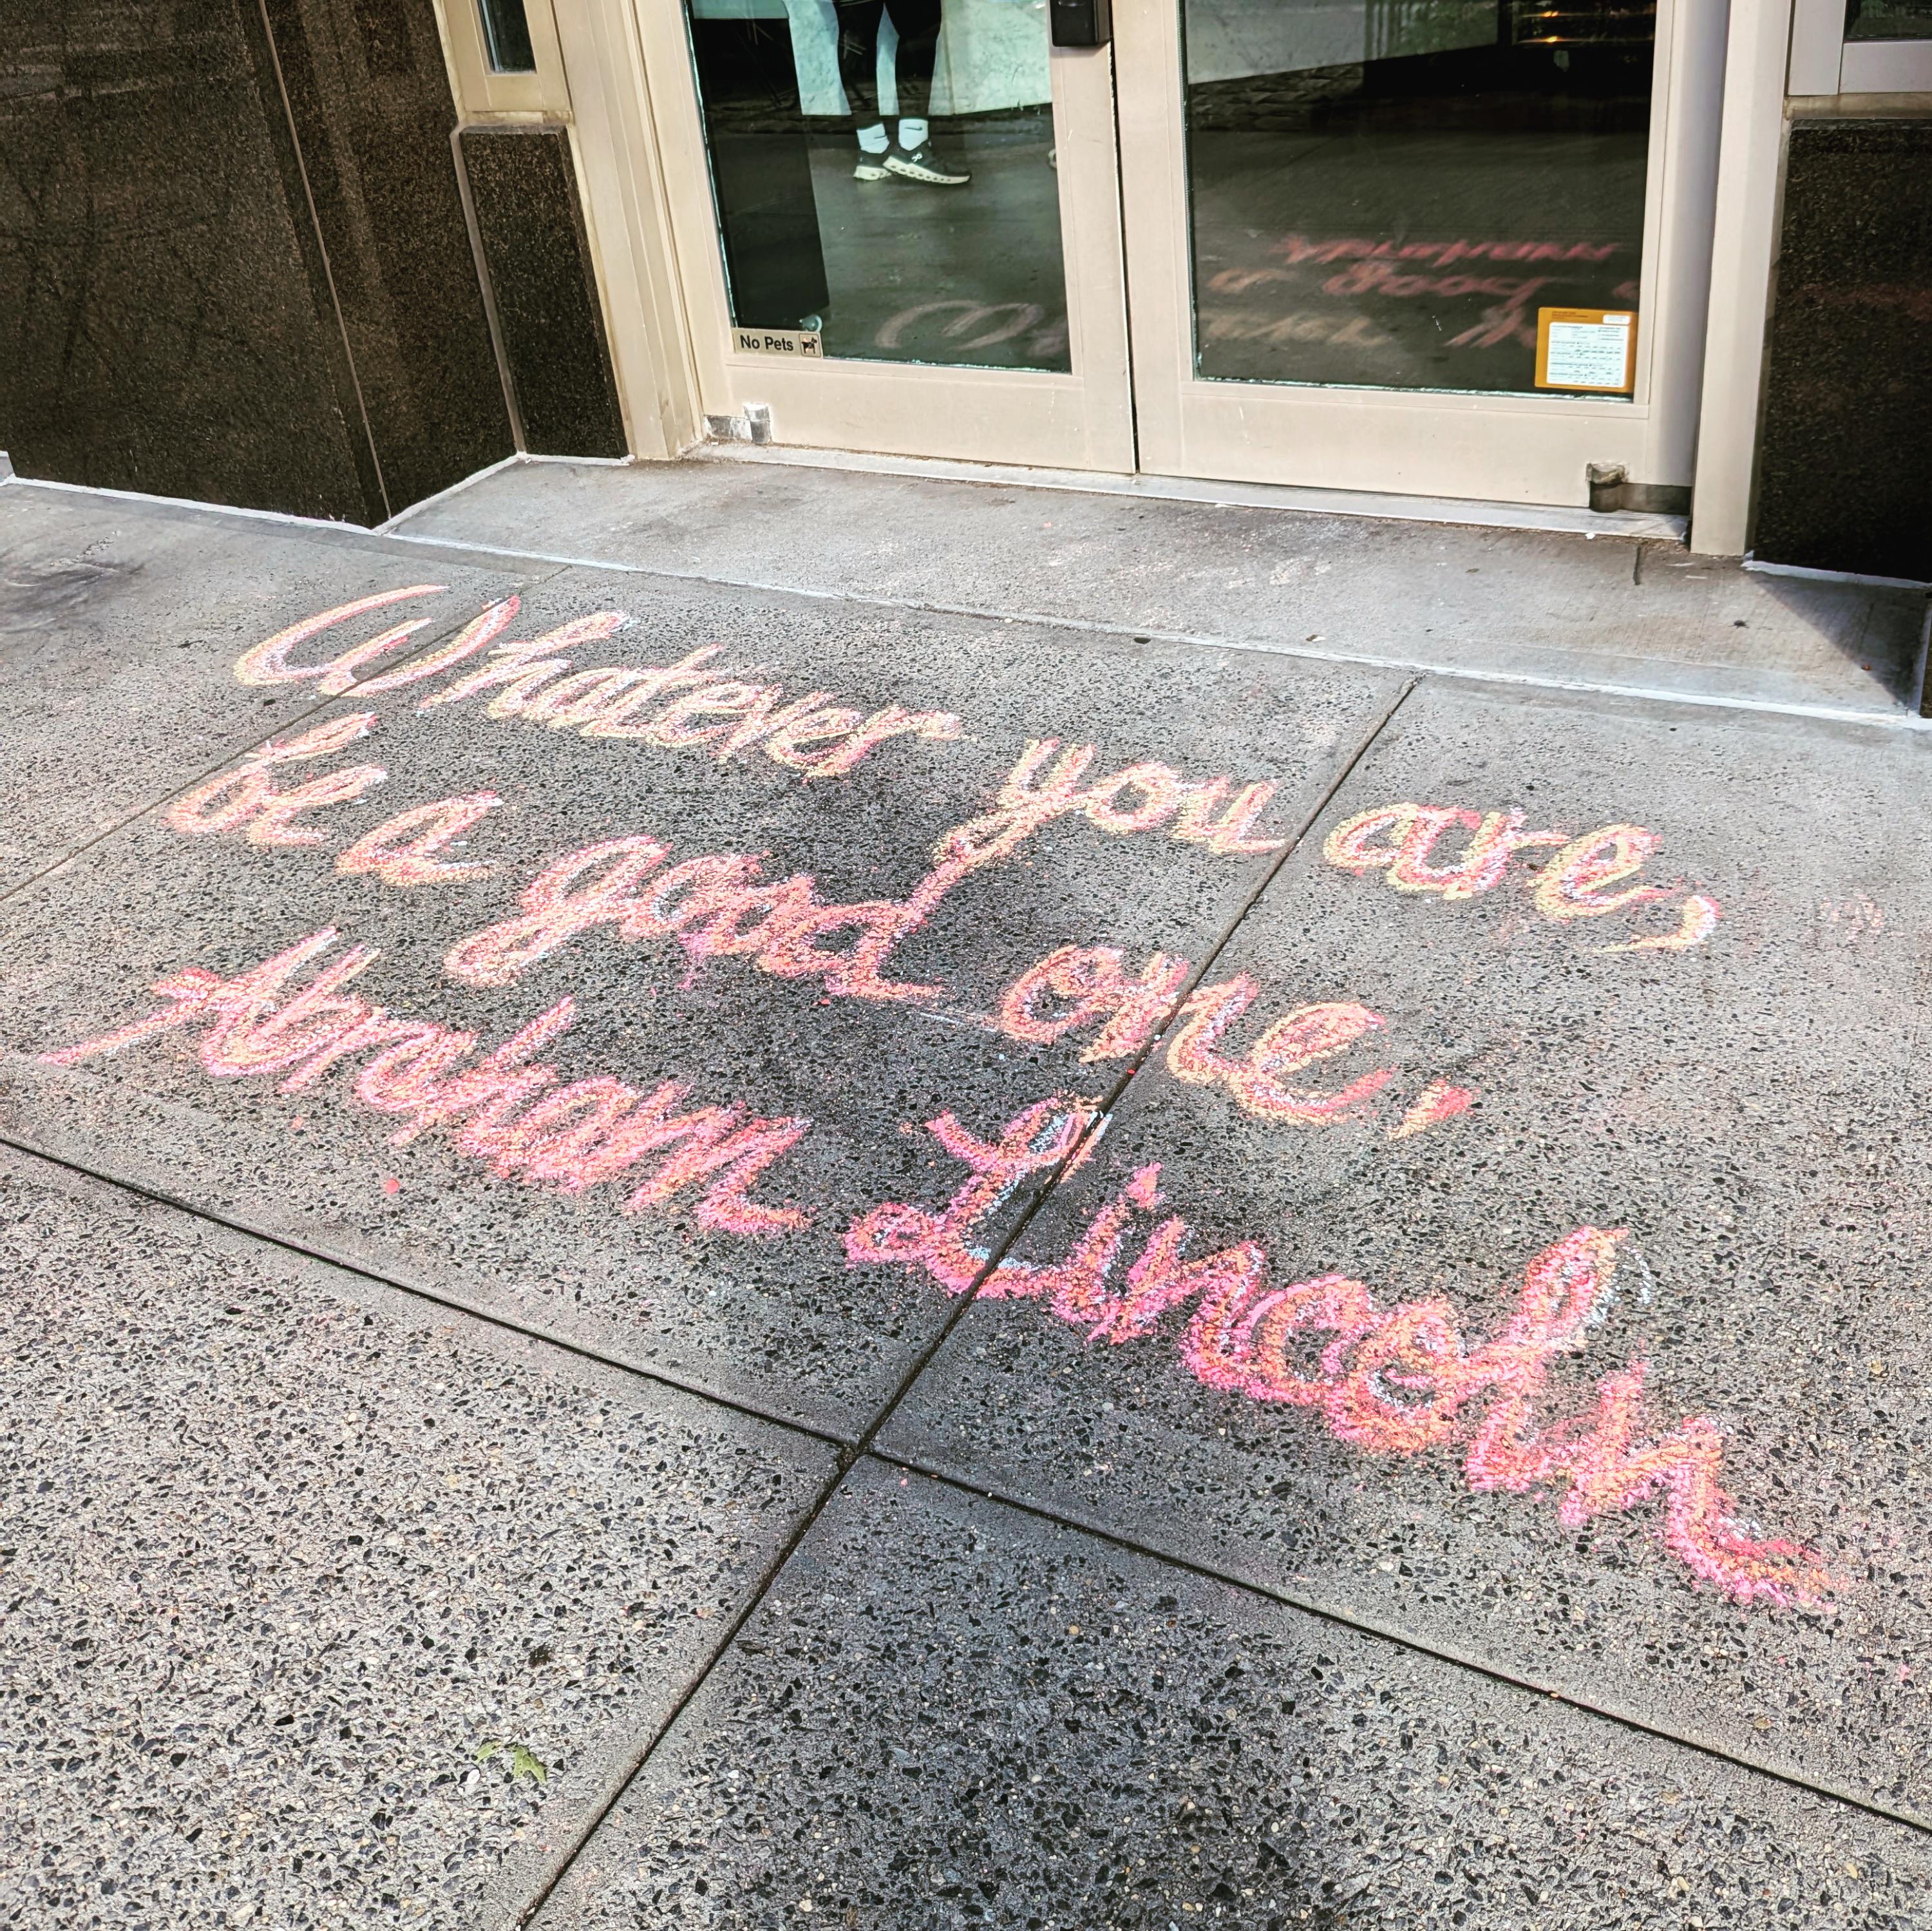 No Pets
Whatever you are,
be a good one,
Abraham Lincoln